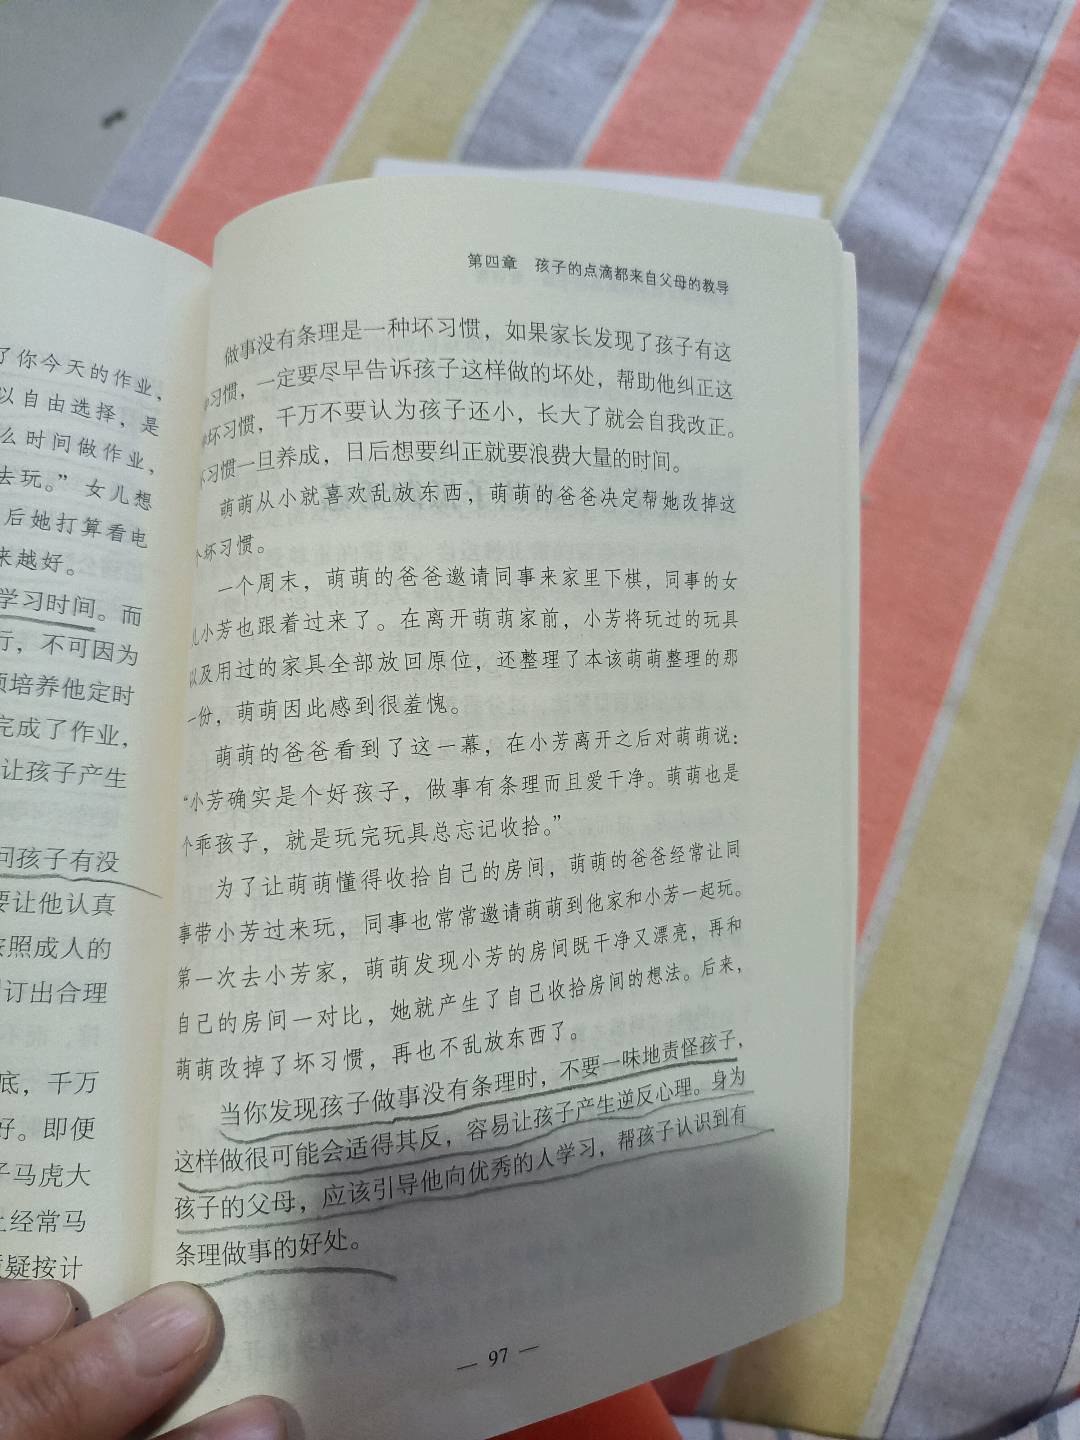 了你今天的作业，
以自由选择，是
么时间做作业，
去玩。”女儿想
后她打算看电
来越好。
学习时间。而
行，不可因为
须培养他定时
完成了作业，
让孩子产生
问孩子有没
要让他认真
按照成人的
订出合理
底，千万
好。即便
子马虎大
上经常马
疑按计
第四章 孩子的点滴都来自父母的教导
做事没有条理是一种坏习惯，如果家长发现了孩子有这
习惯，一定要尽早告诉孩子这样做的坏处，帮助他纠正这
坏习惯，千万不要认为孩子还小，长大了就会自我改正。
习惯一旦养成，日后想要纠正就要浪费大量的时间。
萌萌从小就喜欢乱放东西，萌萌的爸爸决定帮她改掉这
个坏习惯。
一个周末，萌萌的爸爸邀请同事来家里下棋，同事的女
儿小芳也跟着过来了。在离开萌萌家前，小芳将玩过的玩具
以及用过的家具全部放回原位，还整理了本该萌萌整理的那
一份，萌萌因此感到很羞愧。
萌萌的爸爸看到了这一幕，在小芳离开之后对萌萌说：
“小芳确实是个好孩子，做事有条理而且爱干净。萌萌也是
个乖孩子，就是玩完玩具总忘记收拾。”
为了让萌萌懂得收拾自己的房间，萌萌的爸爸经常让同
事带小芳过来玩，同事也常常邀请萌萌到他家和小芳一起玩。
第一次去小芳家，萌萌发现小芳的房间既干净又漂亮，再和
自己的房间一对比，她就产生了自己收拾房间的想法。后来，
萌萌改掉了坏习惯，再也不乱放东西了。
当你发现孩子做事没有条理时，不要一味地责怪孩子，
这样做很可能会适得其反，容易让孩子产生逆反心理。身为
孩子的父母，应该引导他向优秀的人学习，帮孩子认识到有
条理做事的好处。
— 97 —